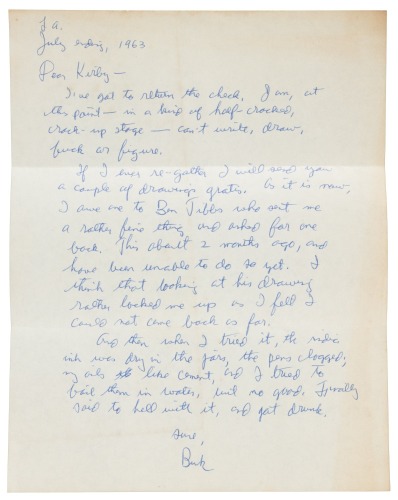 L.a.
July ending, 1963
Dear Kirby—
I've got to return the check. I am, at
this point — in a kind of half-cracked,
crack-up stage — can't write, draw,
fuck or figure.
If I ever re-gather I will send you
a couple of drawings gratis. As it is now,
I owe one to Ben Tibbs who sent me
a rather fine thing and asked for one
back. This about 2 months ago, and
have been unable to do so yet. I
think that looking at his drawing
rather locked me up as I felt I
could not come back as far.
And then when I tried it, the india
ink was dry in the jars, the pens clogged;
my oils like cement, and I tried to
boil them in water, but no good. Finally
said to hell with it, and got drunk.
sure,
Buk